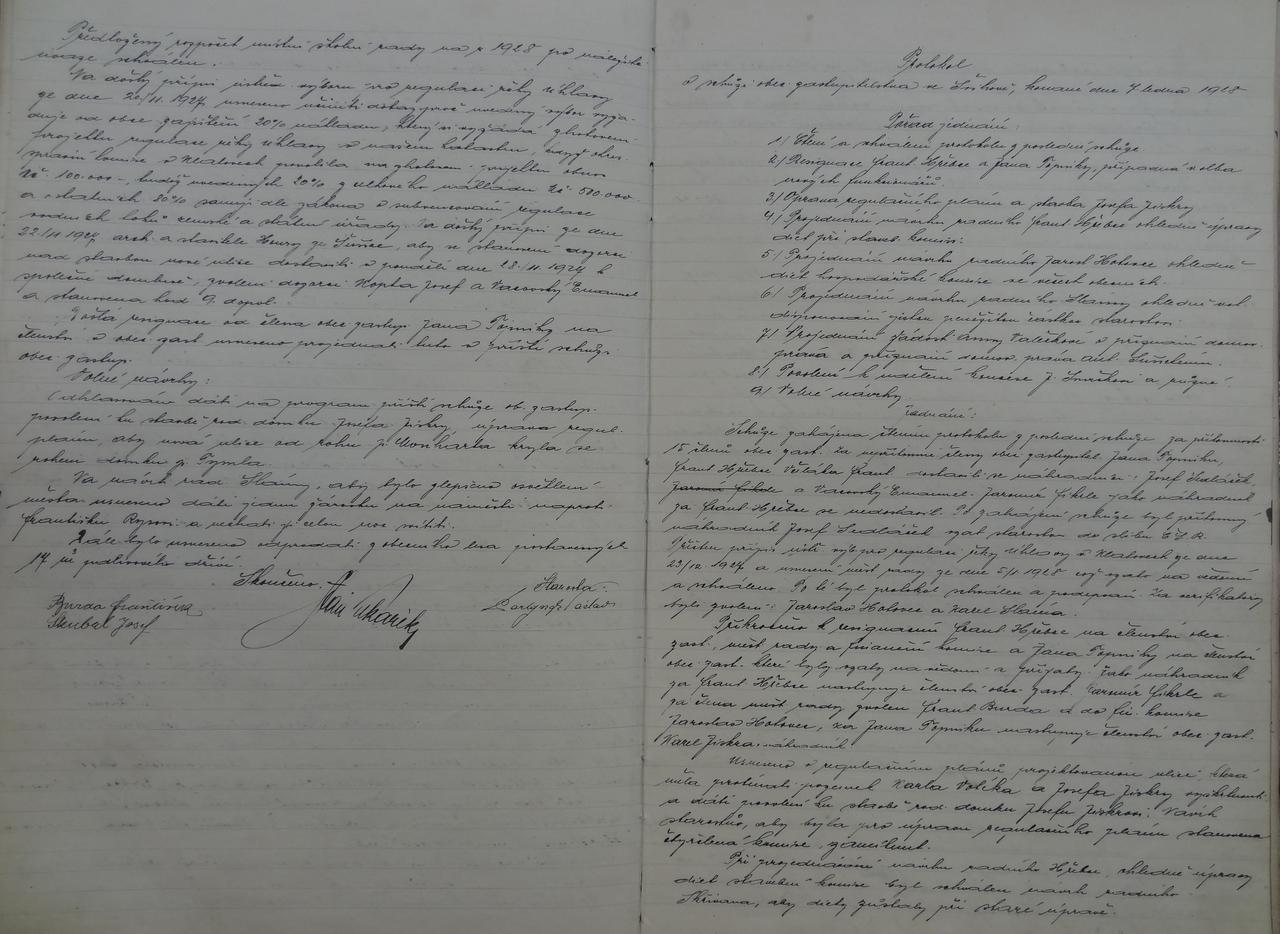 Předložený rozpočet místní školní rady na r 1928 po náležité
úvaze schválen.
Na došlý přípis ústřed. výboru pro regulaci řeky Úhlavy
ze dne 20/11. 1927 usneseno učiniti dotaz proč uvedený výbor vyža-
duje od obce zapištění 20% nákladu, který si vyžádá zhotovení
projektu regulace řeky Úhlavy v našem katastru, když okres.
správní komise v Klatovech povolila na zhotovení projektu obnos
Kč 100.000-, kudíž uvedených 20% z celkového nákladu Kč 500.000-
a ostatních 80% sanují dle zákona o subvencování regulace
vodních toků zemské a státní úřady. Na došlý přípis ze dne
22/11 1927, arch. a stavitele Houry ze Sušice, aby se stanovení dozorci
nad stavbou nové ulice dostavili v pondělí dne 28/11. 1927 k
společné domluvě, zvoleni dozorci Kopta Josef a Vacovský Emanuel
a stanovena hod 9. dopol.
Došlá resignace od člena obec. zastup. Jana Topinky na
členství v obec. zast usneseno projednati tuto v příští schůzi
obec. zastup.
Volné návrhy:
Odhlasováno dáti na program příští schůze ob. zastup.
povolení ku stavbě rod. domku Josefa Jiskry, úprava regul.
plánu, aby nová ulice od rohu p. Monharta kryla se
rohem domku p. Tymla.
Na návrh rad Slámy, aby bylo zlepšeno osvětlení
města usneseno dáti jednu žárovku na náměstí naproti
Františku Rysovi a nechati ji celou noc svítiti.
Dále bylo usneseno odprodati z obecního lesa postavených
14 m podkrového dříví.
Skončeno.
Starosta:
Burda František
Skubal Josef
Protokol
o schůzi obec. zastupitelstva ve Švihově, konané dne 7. ledna 1928
Pořad jednání:
1./ Čtení a schválení protokolu z poslední schůze
2./ Resignace Frant. Hřebce a Jana Topinky, případná volba
nových funkcionářů.
3./ Oprava regulačního plánu a stavba Josefa Jiskry
4./ Projednání návrhu radního Frant Hřebce ohledně úpravy
diet při staveb. komisi.
5./ Projednání návrhu radního Jarosl. Hotovce ohledně
diet hospodářské komise ve všech oborech.
6./ Projednání návrhu radního Slámy ohledně vol.
disponování jistou peněžitou částkou starostou.
7./ Projednání žádosti Anny Valečkové o přiznání domov.
práva a přiznání domov. práva Ant. Sušickému.
8./ Povolení k udělení koncese J. Smrčkovi a různé
9./ Volné návrhy.
Jednání:
Schůze zahájena čtením protokolu z poslední schůze za přítomnosti
15 členů obec zast. Za nepřítomné členy obec. zastupitel. Jana Topinku,
Frant Hřebce Voláka Frant. dostavili se náhradníci: Josef Sedláček,
Jaromír Fikrle a Vacovský Emanuel. Jaromír Fikrle jako náhradník
za Frant Hřebce se nedostavil. Po zahájení schůze byl přítomný
náhradník Josef Sedláček vzat starostou do slibu Č.S.R.
Přečten přípis ústř. výb. pro regulaci řeky Úhlavy v Klatovech ze dne
23/12. 1927 a usnesení míst. rady ze dne 5/1 1928 což vzato na vědomí
a schváleno. Po té byl protokol schválen a podepsán. Za verifikátory
byli zvoleni: Jaroslav Hotovec a Karel Sláma.
Přikročeno k resignacím Frant. Hřebce na členství obec.
zast., míst rady a finanční komise a Jana Topinky na členství
obec. zast. které byly vzaty na vědomí a přijaty. Jako náhradník
za Frant. Hřebce nastupuje členství obec. zast. Jaromír Fikrle a
za člena míst rady zvolen Frant Burda a do fin. komise
Jaroslav Hotovec, za Jana Topinku nastupuje členství obec. zast.
Karel Jiskra náhradník
Usneseno v regulačním plánu projektovanou ulici, která
měla protínati pozemek Karla Voláka a Josefa Jiskry vyškrtnouti
a dáti povolení ku stavbě rod. domku Josefu Jiskrovi. Návrh
starostův, aby byla pro úpravu regulačního plánu stanovena
čtyřčlená komise, zamítnut.
Při projednávání návrhu radního Hřebce, ohledně úpravy
diet stavební komise byl schválen návrh radního
Skřivana, aby diety zůstaly při staré úpravě.